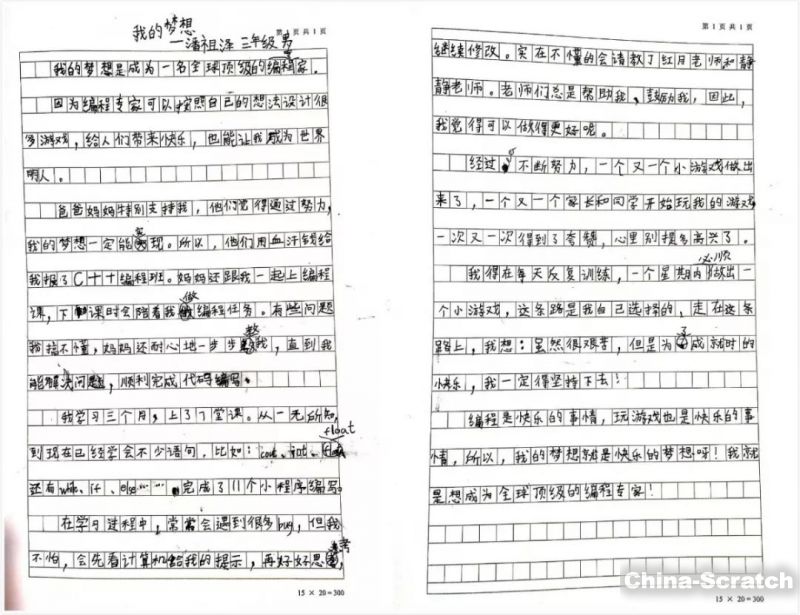 我的梦想
—潘祖泽 三年级 男
第1页共1页
我的梦想是成为一名全球顶级的编程家。
因为编程专家可以按照自己的想法设计很
多游戏,给人们带来快乐,也能让我成为世界
明人。
爸爸妈妈特别支持我,他们觉得通过努力,
我的梦想一定能实现。所以,他们用血汗钱给
我报了C++编程班。妈妈还跟我一起上编程
课,下课时会陪着我做编程任务。有些问题
我搞不懂,妈妈还耐心地一步步教我,直到我
能解决问题,顺利完成代码编写。
我学习三个月,上了7堂课。从一无所知,
到现在已经学会不少语句,比如:cout、int、float
还有while、if、else……完成了11个小程序编写。
在学习过程中,常常会遇到很多bug,但我
不怕,会先看计算机给我的提示,再好好思考,
15 × 20 = 300
第1页共1页
继续修改。实在不懂的会请教了红月老师和静
静老师。老师们总是帮助我、鼓励我,因此,
我觉得可以做得更好呢。
经过不断努力,一个又一个小游戏做出
来了,一个又一个家长和同学开始玩我的游戏
一次又一次得到了夸赞,心里别提多高兴了。
我得在每天反复训练,一个星期内必须做出一
个小游戏,这条路是我自己选择的,走在这条
路上,我想:虽然很艰苦,但是为了成就时的
快乐,我一定得坚持下去!
编程是快乐的事情,玩游戏也是快乐的事
情,所以,我的梦想就是快乐的梦想呀!我就
是想成为全球顶级的编程专家!
15 × 20 = 300
China-Scratch